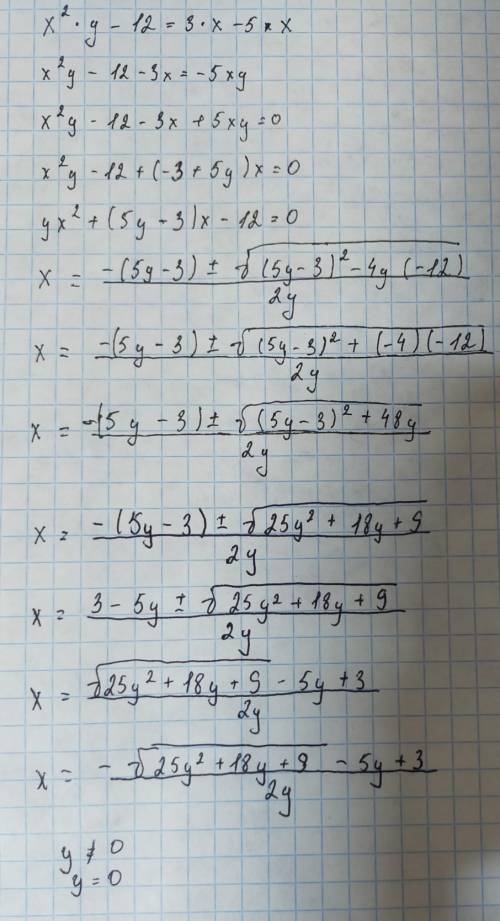 x² · y - 12 = 3 · x - 5 * x
x²y - 12 - 3x = -5xy
x²y - 12 - 3x + 5xy = 0
x²y - 12 + (-3 + 5y)x = 0
yx² + (5y - 3)x - 12 = 0
x = (-(5y - 3) ± √((5y - 3)² - 4y(-12))) / 2y
x = (-(5y - 3) ± √((5y - 3)² + (-4)(-12))) / 2y
x = (-(5y - 3) ± √((5y - 3)² + 48y)) / 2y
x = (-(5y - 3) ± √(25y² + 18y + 9)) / 2y
x = (3 - 5y ± √(25y² + 18y + 9)) / 2y
x = (√(25y² + 18y + 9) - 5y + 3) / 2y
x = (-√(25y² + 18y + 9) - 5y + 3) / 2y
y ≠ 0
y = 0